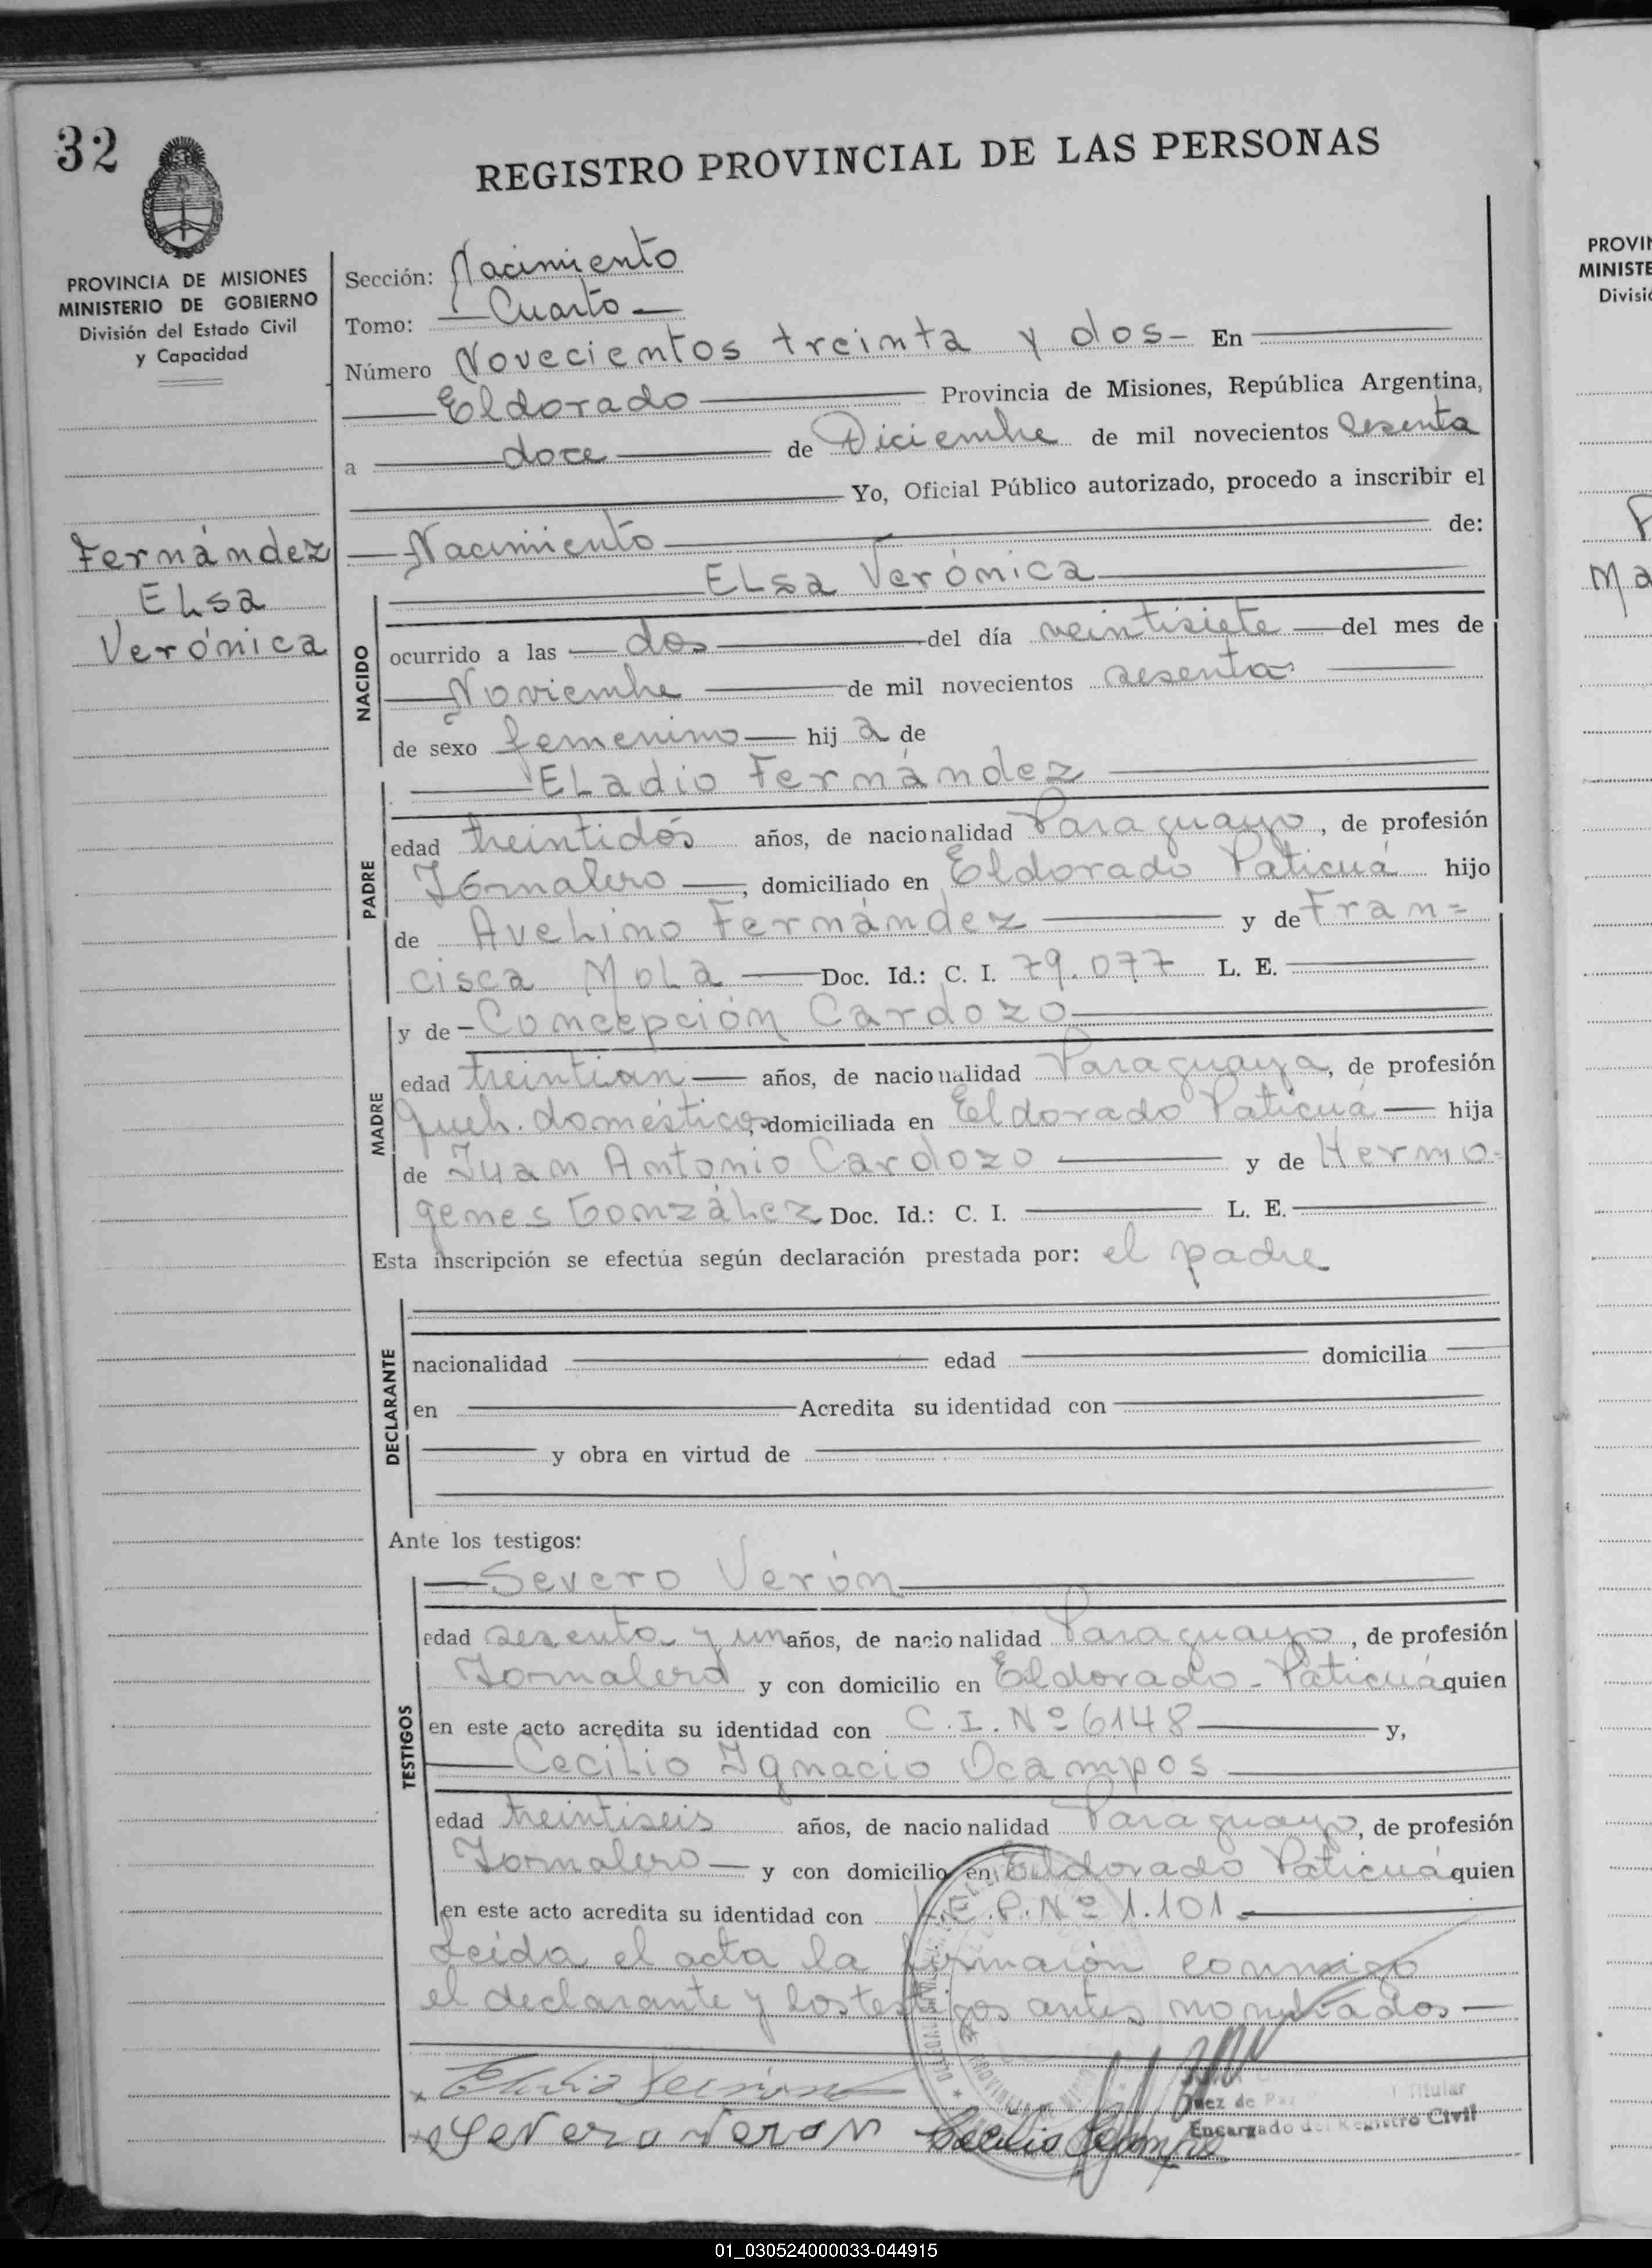 32
REGISTRO PROVINCIAL DE LAS PERSONAS
PROVINCIA DE MISIONES
MINISTERIO DE GOBIERNO
División del Estado Civil
y Capacidad
Fernández
Elsa
Verónica
Sección: Nacimiento
Tomo: Cuarto
Número Novecientos treinta y dos- En
Eldorado Provincia de Misiones, República Argentina,
a doce de Diciembre de mil novecientos sesenta
Yo, Oficial Público autorizado, procedo a inscribir el
Nacimiento de:
Elsa Verónica
NACIDO
ocurrido a las dos del día veintisiete del mes de
Noviembre de mil novecientos sesenta
de sexo femenino hij a de
Eladio Fernández
PADRE
edad treintidós años, de nacionalidad Paraguayo, de profesión
Jornalero, domiciliado en Eldorado Paticuá hijo
de Avelino Fernández y de Fran=
cisca Mola Doc. Id.: C. I. 79.077 L. E.
y de Concepción Cardozo
MADRE
edad treintiun años, de nacionalidad Paraguaya, de profesión
queh. domésticos, domiciliada en Eldorado Paticuá hija
de Juan Antonio Cardozo y de Hermo-
genes González Doc. Id.: C. I. L. E.
Esta inscripción se efectúa según declaración prestada por: el padre
DECLARANTE
nacionalidad edad domicilia
en Acredita su identidad con
y obra en virtud de
Ante los testigos:
Severo Verón
TESTIGOS
edad sesenta y un años, de nacionalidad Paraguayo, de profesión
Jornalero y con domicilio en Eldorado - Paticuá quien
en este acto acredita su identidad con C.I. Nº 6148 y,
Cecilio Ignacio Ocampos
edad treintiseis años, de nacionalidad Paraguayo, de profesión
Jornalero y con domicilio en Eldorado Paticuá quien
en este acto acredita su identidad con L.E.P. Nº 1.101
Leída el acta la firmarón conmigo
el declarante y los testigos antes nombrados
Severo Veron
Cecilio
Juez de Paz Titular
Encargado del Registro Civil
PROVIN
MINISTE
Divisió
F
Ma
01_030524000033-044915